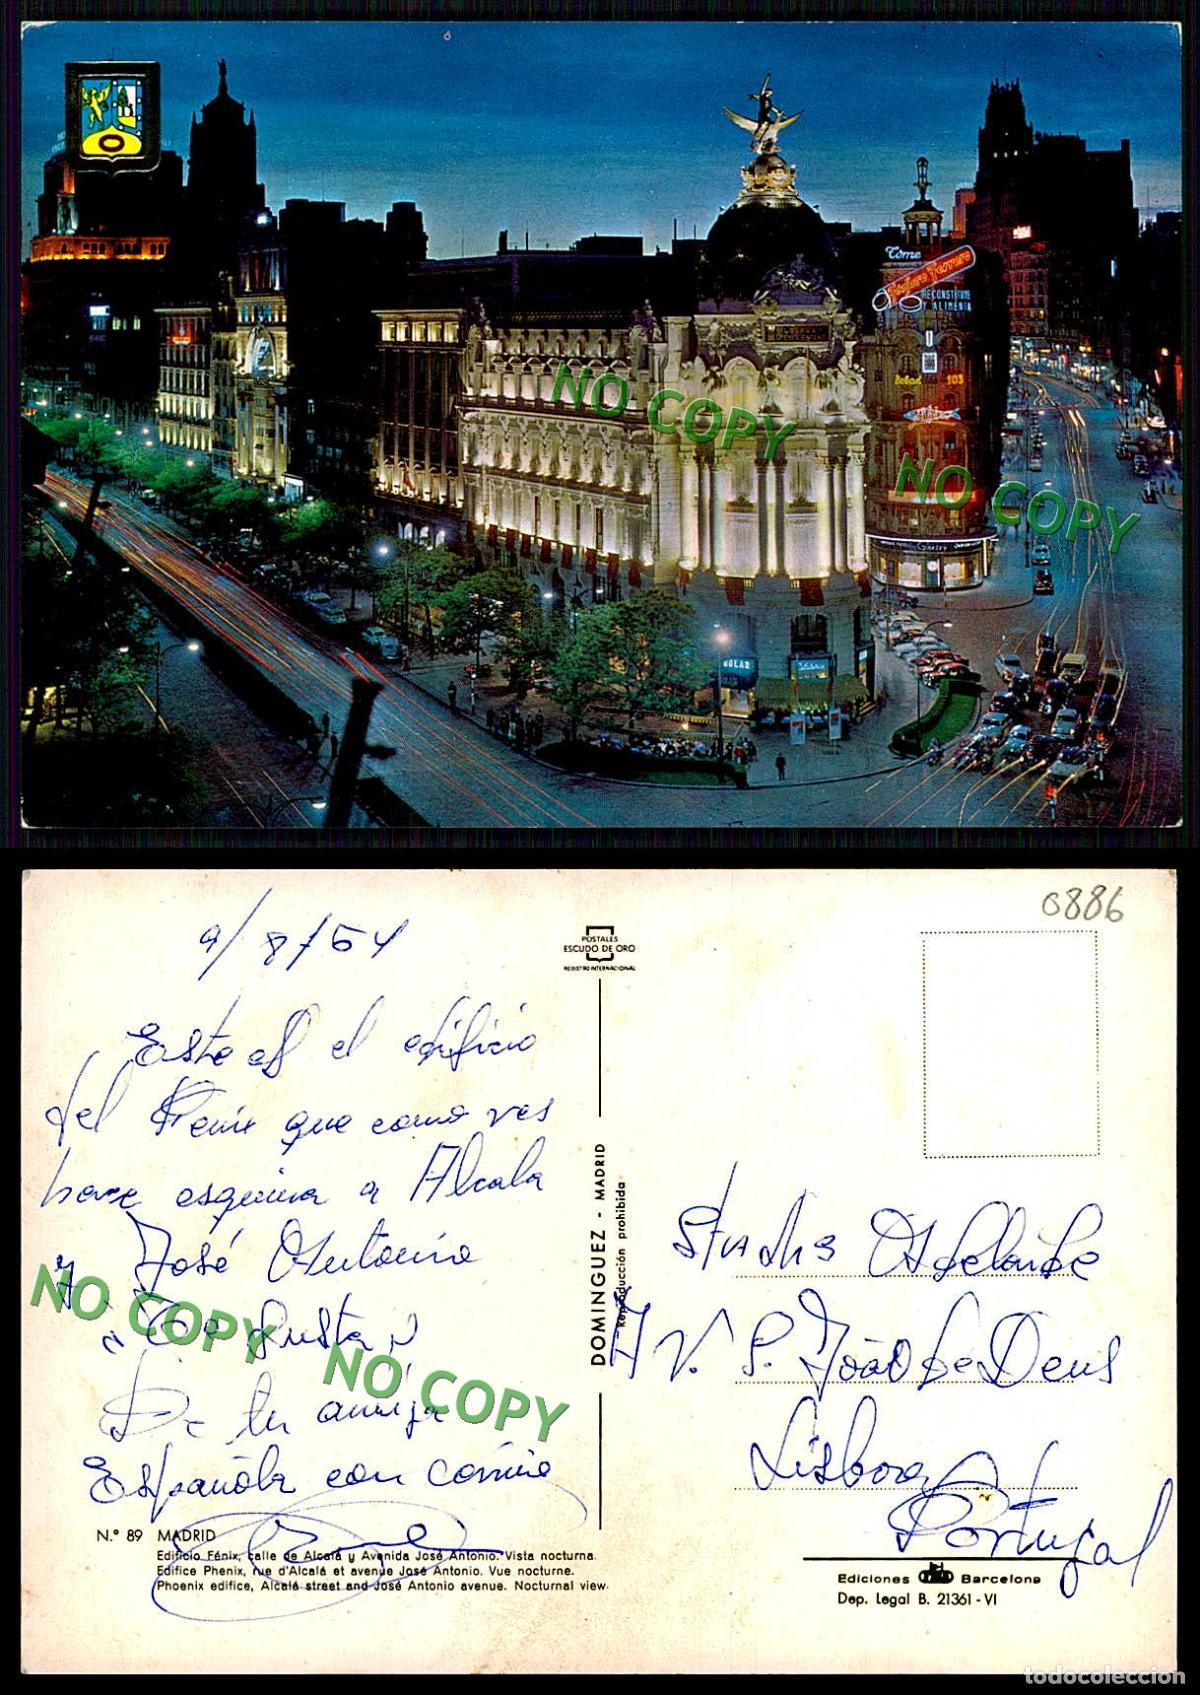 Tome
RECONSTITUYE
Y ALIMENTA
103
NO COPY
NO COPY
0886
9/8/64
POSTALES
ESCUDO DE ORO
REGISTRO INTERNACIONAL
Este es el edificio
del Fenix que como ves
hace esquina a Alcala
y José Antonio
¿Te gusta?
De tu amiga
Española con cariño
NO COPY
NO COPY
Nº 89 MADRID
Edificio Fénix, calle de Alcalá y Avenida José Antonio. Vista nocturna.
Edifice Phenix, rue d'Alcalá et avenue José Antonio. Vue nocturne.
Phoenix edifice, Alcalá street and José Antonio avenue. Nocturnal view.
DOMINGUEZ - MADRID
Reproducción prohibida
Studios Adelaide
AV. S. João de Deus
Lisboa
Portugal
Ediciones Barcelona
Dep. Legal B. 21361-VI
todocoleccion